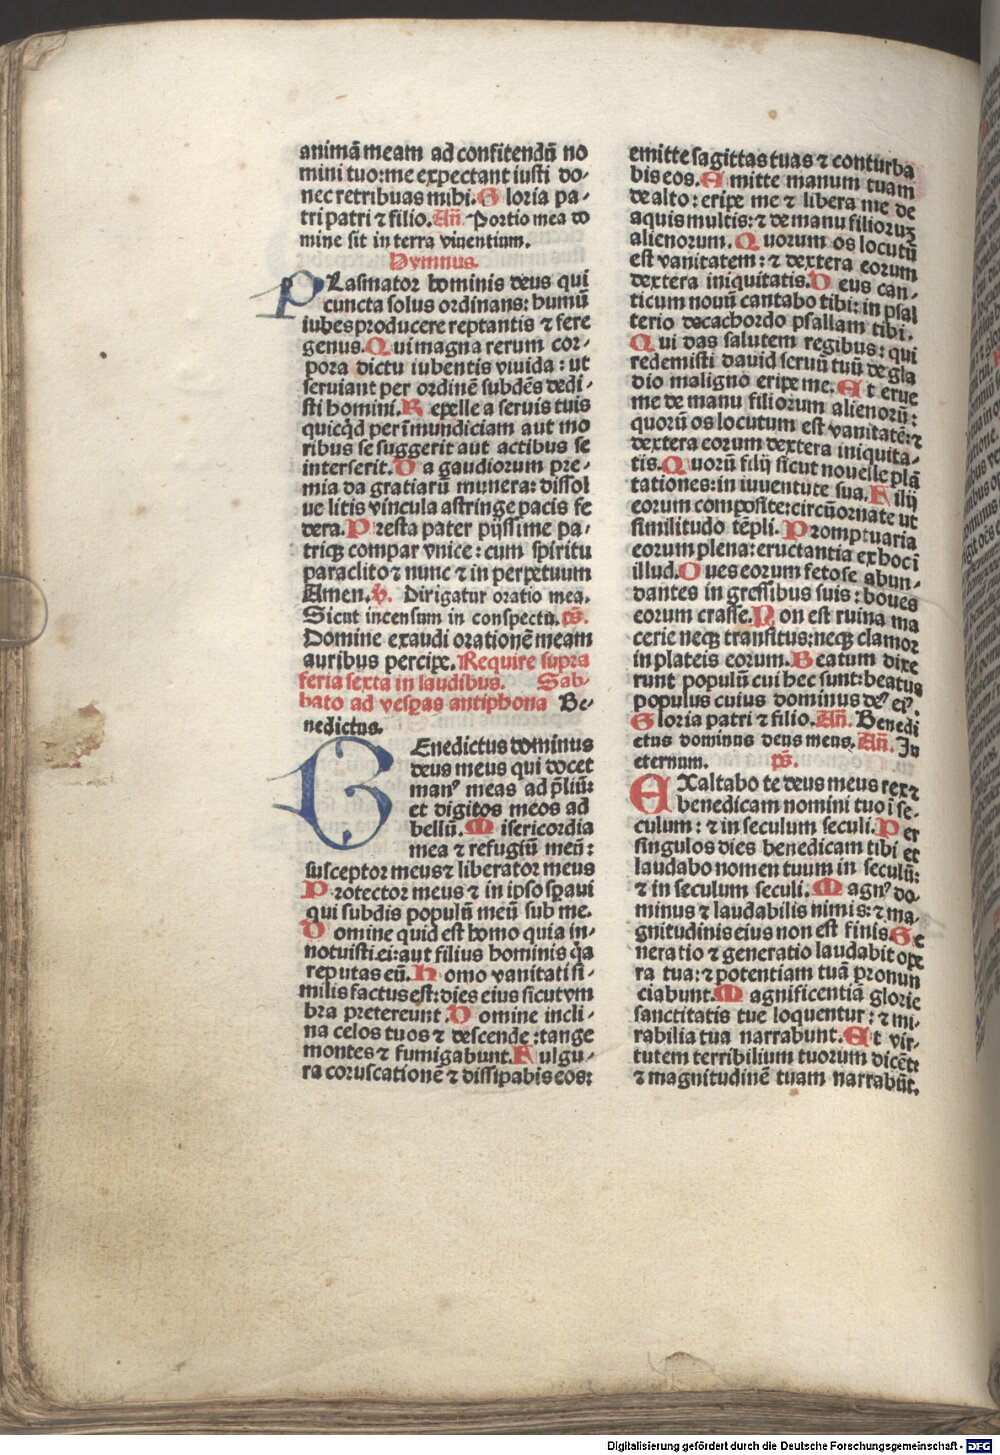 animā meam ad confitendū no
mini tuo: me expectant iusti do-
nec retribuas mihi. Gloria pa-
tri patri ⁊ filio. Añ. Portio mea do
mine sit in terra viuentium.
Hymnus.
PLasmator hominis deus qui
cuncta solus ordinans: humū
iubes producere reptantis ⁊ fere
genus. Qui magna rerum cor-
pora dictu iubentis viuida: ut
seruiant per ordinē subdēs dedi-
sti homini. Repelle a seruis tuis
quicq̄d per īmundiciam aut mo
ribus se suggerit aut actibus se
interserit. Da gaudiorum pre-
mia da gratiarū munera: dissol
ue litis vincula astringe pacis fe
dera. Presta pater pijssime pa-
triqꝫ compar vnice: cum spiritu
paraclito ⁊ nunc ⁊ in perpetuum
Amen. ℣. Dirigatur oratio mea.
Sicut incensum in conspectu. ps̄.
Domine exaudi orationē meam
auribus percipe. Require supra
feria sexta in laudibus. Sab-
bato ad vesꝑas antiphona Be-
nedictus.
BEnedictus dominus
deus meus qui docet
manꝰ meas ad p̄liū:
et digitos meos ad
bellū. Misericordia
mea ⁊ refugiū meū:
susceptor meus ⁊ liberator meus
Protector meus ⁊ in ipso sꝑaui
qui subdis populū meū sub me.
Domine quid est homo quia in-
notuisti ei: aut filius hominis q̄a
reputas eū. Homo vanitati si-
milis factus est: dies eius sicut vm
bra pretereunt. Domine incli-
na celos tuos ⁊ descende: tange
montes ⁊ fumigabunt. Fulgu-
ra coruscationē ⁊ dissipabis eos:
emitte sagittas tuas ⁊ conturba
bis eos. Emitte manum tuam
de alto: eripe me ⁊ libera me de
aquis multis: ⁊ de manu filioruꝫ
alienorum. Quorum os locutū
est vanitatem: ⁊ dextera eorum
dextera iniquitatis. Deus can-
ticum nouū cantabo tibi: in psal
terio decachordo psallam tibi.
Qui das salutem regibus: qui
redemisti dauid seruū tuū de gla
dio maligno eripe me. Et erue
me de manu filiorum alienorū:
quorū os locutum est vanitatē: ⁊
dextera eorum dextera iniquita-
tis. Quorū filij sicut nouelle plā
tationes: in iuuentute sua. Filij
eorum composite: circūornate ut
similitudo tēpli. Promptuaria
eorum plena: eructantia ex hoc ī
illud. Oues eorum fetose abun-
dantes in gressibus suis: boues
eorum crasse. Non est ruina ma
cerie neqꝫ transitus: neqꝫ clamor
in plateis eorum. Beatum dixe
runt populū cui hec sunt: beatus
populus cuius dominus deꝰ eiꝰ.
Gloria patri ⁊ filio. Añ. Benedi
ctus dominus deus meus. Añ. In
eternum. ps̄.
EXaltabo te deus meus rex ⁊
benedicam nomini tuo ī se-
culum: ⁊ in seculum seculi. Per
singulos dies benedicam tibi et
laudabo nomen tuum in seculū:
⁊ in seculum seculi. Magnꝰ do-
minus ⁊ laudabilis nimis: ⁊ ma-
gnitudinis eius non est finis. Ge
neratio ⁊ generatio laudabit ope
ra tua: ⁊ potentiam tuā pronun
ciabunt. Magnificentiā glorie
sanctitatis tue loquentur: ⁊ mi-
rabilia tua narrabunt. Et vir-
tutem terribilium tuorum dicēt:
⁊ magnitudinē tuam narrabūt.
Digitalisierung gefördert durch die Deutsche Forschungsgemeinschaft - DFG